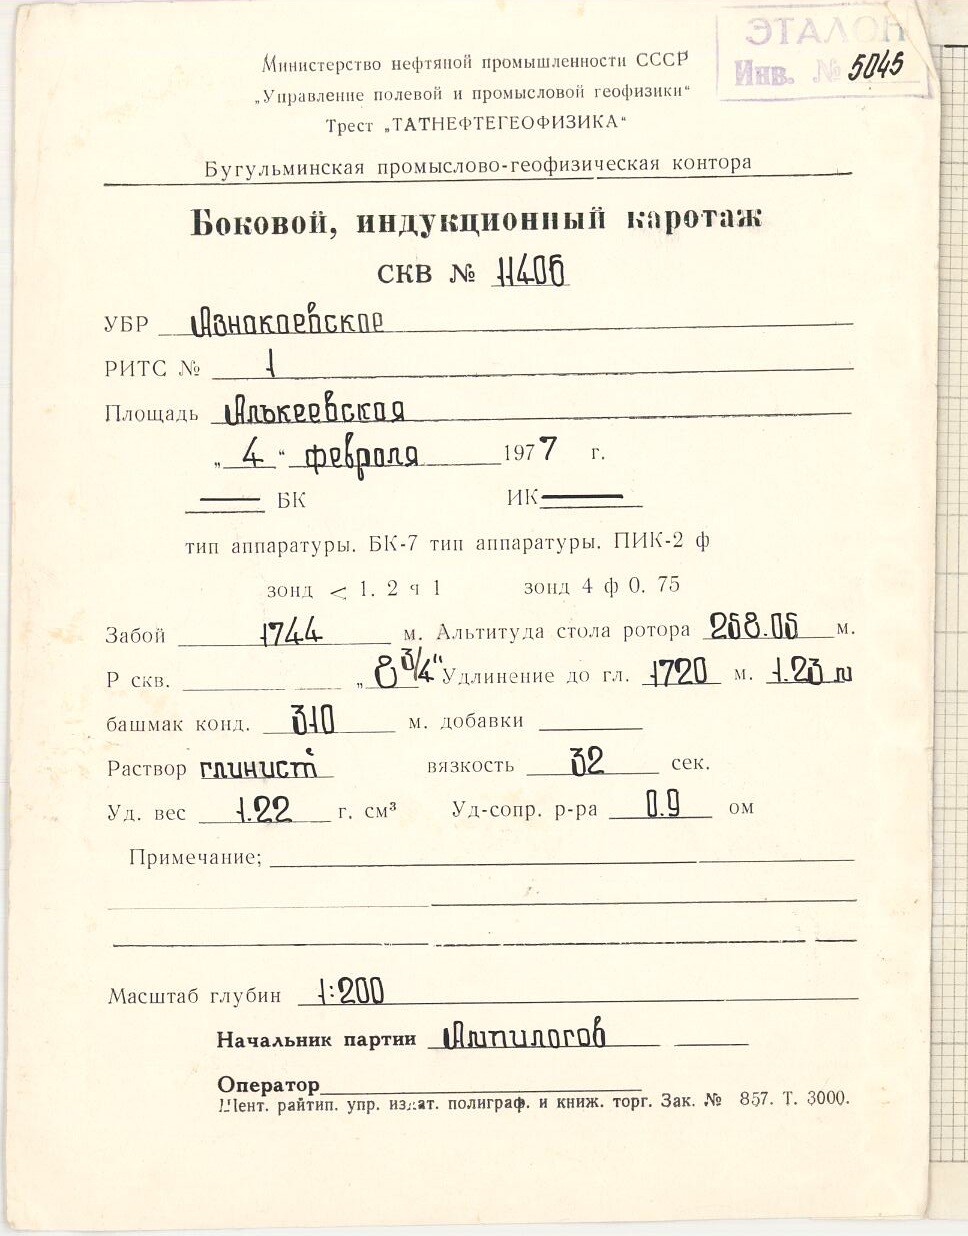 ЭТАЛОН
Инв. № 5045
Министерство нефтяной промышленности СССР
„Управление полевой и промысловой геофизики“
Трест „ТАТНЕФТЕГЕОФИЗИКА“
Бугульминская промыслово-геофизическая контора
Боковой, индукционный каротаж
СКВ № 11406
УБР Азнакаевское
РИТС № 1
Площадь Алькеевская
„ 4 “ февраля 1977 г.
БК ИК
тип аппаратуры. БК-7 тип аппаратуры. ПИК-2 ф
зонд < 1. 2 ч 1 зонд 4 ф 0. 75
Забой 1744 м. Альтитуда стола ротора 268.06 м.
Р скв. „ 8 3/4" Удлинение до гл. 1720 м. 1.23 м
башмак конд. 310 м. добавки
Раствор глинист вязкость 32 сек.
Уд. вес 1.22 г. см³ Уд-сопр. р-ра 0.9 ом
Примечание;
Масштаб глубин 1:200
Начальник партии Ампилогов
Оператор
Мент. райтип. упр. издат. полиграф. и книж. торг. Зак. № 857. Т. 3000.